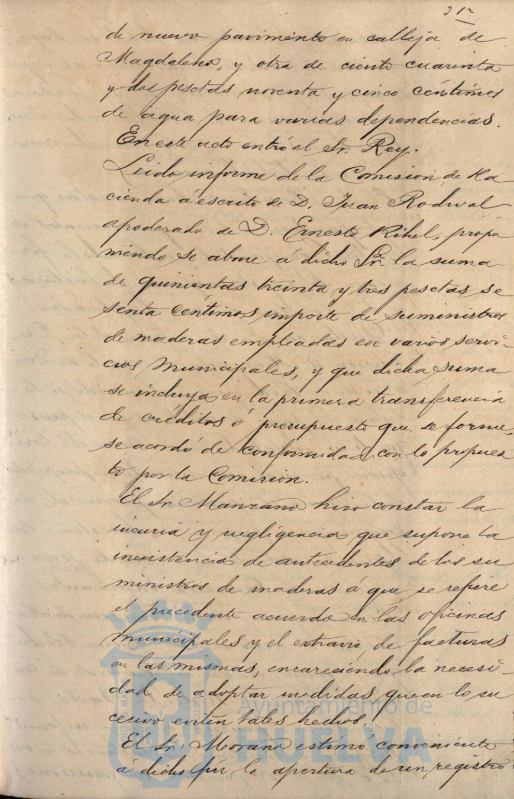 de nuevo pavimento en calleja de
Magdalena, y otra de ciento cuarenta
y dos pesetas noventa y cinco céntimos
de agua para varias dependencias.
En este acto entró el Sr. Rey.
Leido informe de la Comisión de Ha
cienda a escrito de D. Juan
apoderado de D. Ernesto propo
niendo se abone á dicho Sr. la suma
de quinientas treinta y tres pesetas, se
senta céntimos, importe de suministros
de maderas empleadas en varios servi
cios municipales, y que dicha suma
se incluya en la primera transferencia
de créditos ó presupuesto que se forme,
se acordó de conformidad con lo propues
to por la Comision.
El Sr. Manzano hizo constar la
incuria y negligencia que supone la
inexistencia de antecedentes de los su
ministros de maderas á que se refiere
el precedente acuerdo en las oficinas
municipales y el extravio de facturas
en las mismas, encareciendo la necesi
dad de adoptar medidas que en lo su
cesivo eviten tales hechos.
El Sr. Morano estimó conveniente
á dicho fin la apertura de un registro
Ayuntamiento de
HUELVA